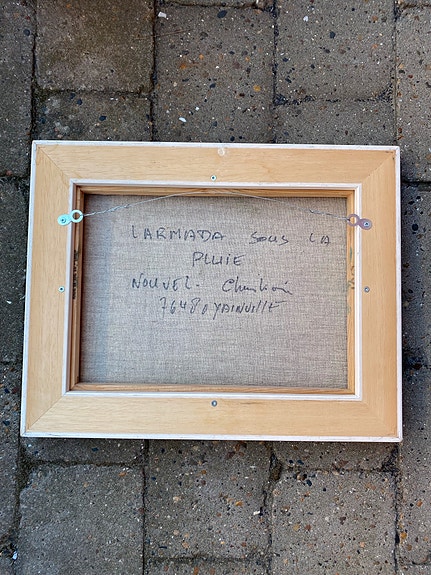 LARMADA SOUS LA
PLUIE
NOUVEL. Christian
76480 YAINVILLE